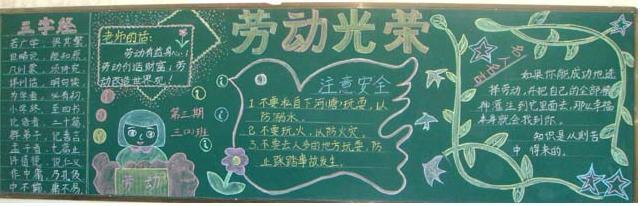 三字经
若广学 惧其繁
但略说 能知原
凡训蒙 须讲究
详训诂 明句读
为学者 必有初
小学终 至四书
论语者 二十篇
群弟子 记善言
孟子者 七篇止
讲道德 说仁义
作中庸 乃孔伋
中不偏 庸不易
老师的话:
劳动有益身心;
劳动创造财富;劳
动改造世界观!
第三期
三(二)班
劳动
劳动光荣
注意安全
1.不要私自下河(塘)玩耍,以
防溺水。
2.不要玩火,以防火灾。
3.不要去人多的地方玩耍,防
止踩踏事故发生。
名人名言
如果你能成功地选
择劳动,并把自己的全部精
神灌注到它里面去,那么幸福
本身就会找到你。
知识是从刻苦
中得来的。